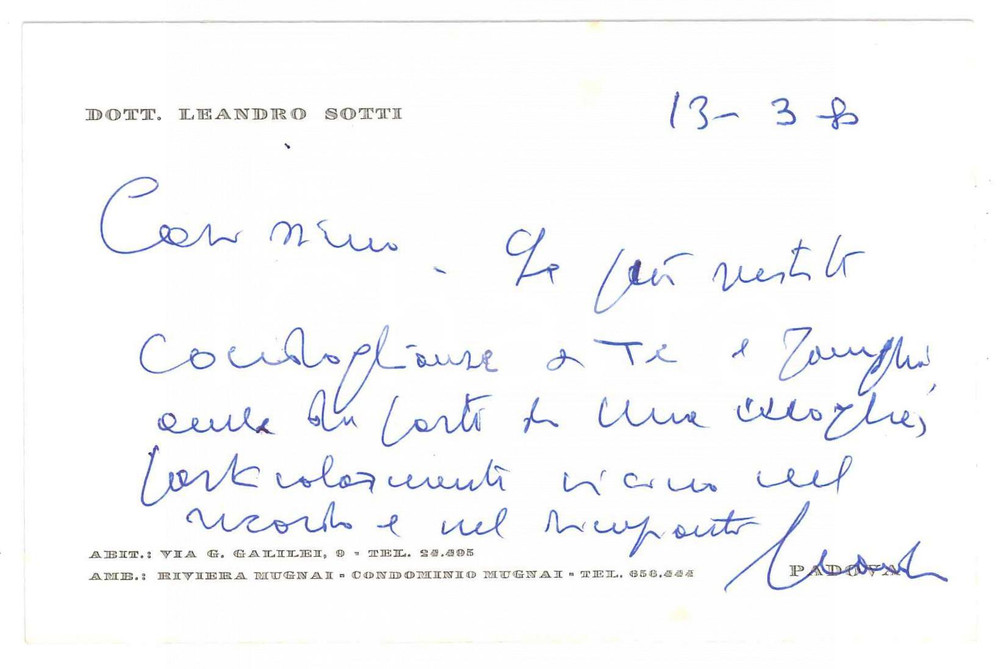 DOTT. LEANDRO SOTTI
13 - 3 80
Caro Nino. Le più sentite
condoglianze a Te e famiglia,
anche da parte di mia moglie,
particolarmente vicino nel
ricordo e nel rimpianto
Leandro
ABIT.: VIA G. GALILEI, 9 - TEL. 24.695
AMB.: RIVIERA MUGNAI - CONDOMINIO MUGNAI - TEL. 656.444
PADOVA